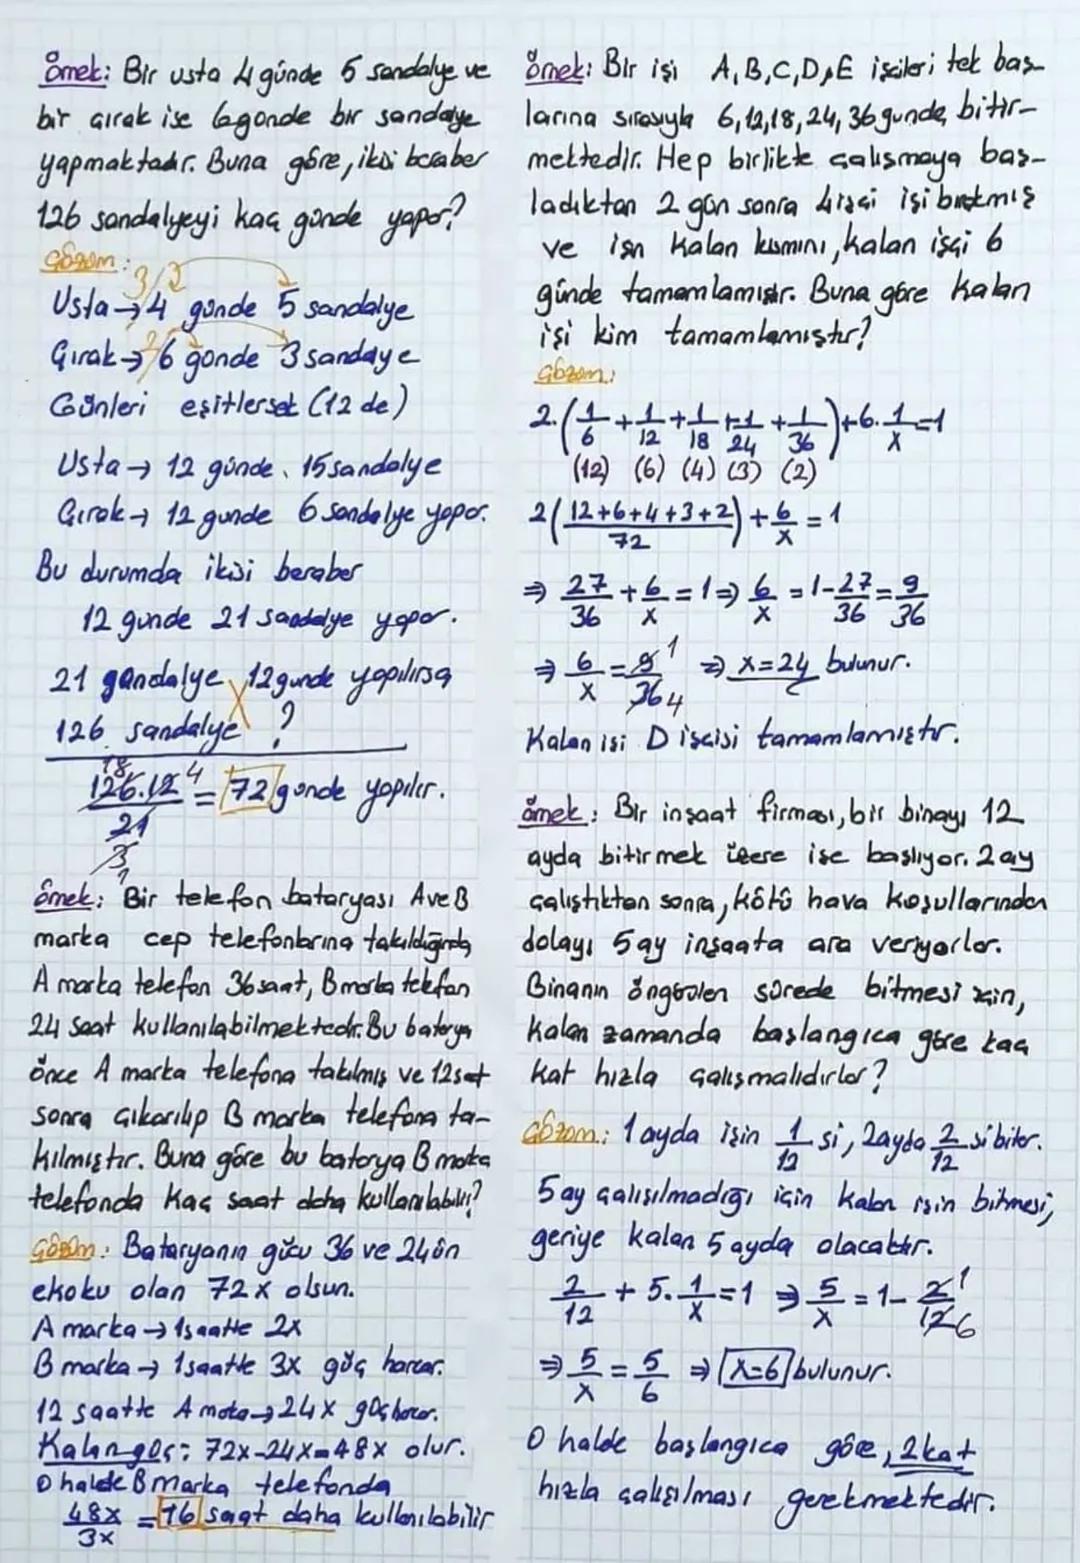 Örnek: Bir usta 4 günde 5 sandalye ve
bir çırak ise 6 günde bir sandalye
yapmaktadır. Buna göre, ikisi beraber
126 sandalyeyi kaç günde yapar?
Çözüm:
3/ 2/
Usta → 4 günde 5 sandalye
Çırak → 6 günde 3 sandalye
Günleri eşitlersek (12 de)
Usta → 12 günde 15 sandalye
Çırak → 12 günde 6 sandalye yapar.
Bu durumda ikisi beraber
12 günde 21 sandalye yapar.
21 sandalye 12 günde yapılırsa
126 sandalye ?
18 4
126.12 = 72 günde yapılır.
21
3
1
Örnek: Bir telefon bataryası A ve B
marka cep telefonlarına takıldığında,
A marka telefon 36 saat, B marka telefon
24 saat kullanılabilmektedir. Bu batarya
önce A marka telefona takılmış ve 12 saat
sonra çıkarılıp B marka telefona ta-
kılmıştır. Buna göre bu batarya B marka
telefonda kaç saat daha kullanılabilir?
Çözüm: Bataryanın gücü 36 ve 24 ün
ekoku olan 72x olsun.
A marka → 1 saatte 2x
B marka → 1 saatte 3x güç harcar.
12 saatte A marka → 24x güç harcar.
Kalan güç: 72x-24x=48x olur.
O halde B marka telefonda
48x = 16 saat daha kullanılabilir
3x
Örnek: Bir işi A,B,C,D,E işçileri tek baş-
larına sırasıyla 6,12,18,24,36 günde bitir-
mektedir. Hep birlikte çalışmaya baş-
ladıktan 2 gün sonra 4 işçi işi bırakmış
ve işin kalan kısmını, kalan işçi 6
günde tamamlamıştır. Buna göre kalan
işi kim tamamlamıştır?
Çözüm:
2.(1/6+1/12+1/18+1/24+1/36)+6.1/x=1
(12) (6) (4) (3) (2)
2(12+6+4+3+2/72)+6/x=1
⇒ 27/36+6/x=1 ⇒ 6/x=1-27/36=9/36
⇒ 6/x=9/36 1 4 ⇒ x=24 bulunur.
Kalan işi D işçisi tamamlamıştır.
Örnek: Bir inşaat firması, bir binayı 12
ayda bitirmek üzere işe başlıyor. 2 ay
çalıştıktan sonra, kötü hava koşullarından
dolayı 5 ay inşaata ara veriyorlar.
Binanın öngörülen sürede bitmesi için,
kalan zamanda başlangıca göre kaç
kat hızla çalışmalıdırlar?
Çözüm: 1 ayda işin 1/12 si, 2 ayda 2/12 si biter.
5 ay çalışılmadığı için kalan işin bitmesi,
geriye kalan 5 ayda olacaktır.
2/12 + 5.1/x=1 ⇒ 5/x=1-2/12 1 6
⇒ 5/x=5/6 ⇒ x=6 bulunur.
O halde başlangıca göre, 2 kat
hızla çalışılması gerekmektedir.